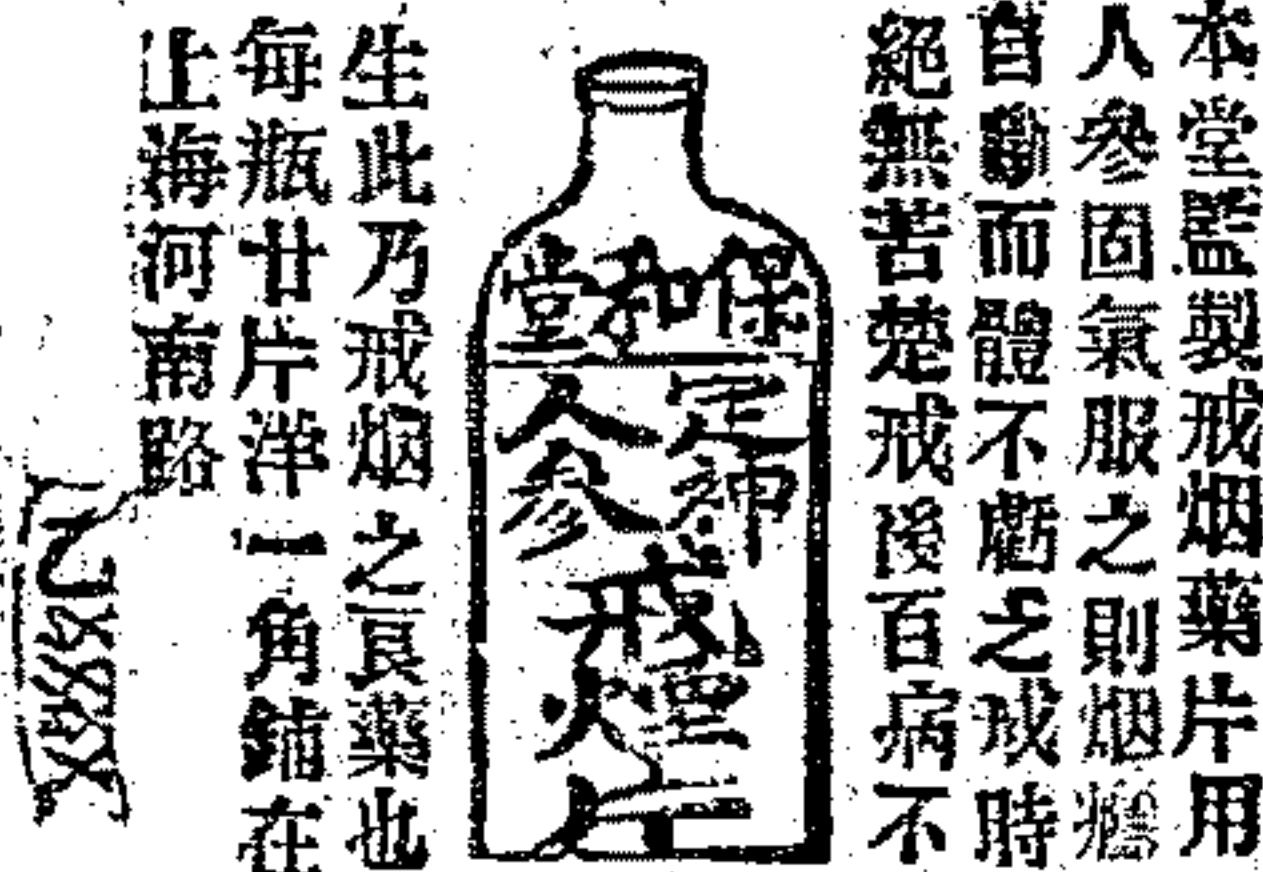 本堂監製戒烟藥片用
人參固氣服之則烟癮
自斷而體不虧之戒時
絕無苦楚戒後百病不
保和堂
定神
人參
戒煙
片
生此乃戒烟之良藥也
每瓶廿片洋一角鋪在
上海河南路